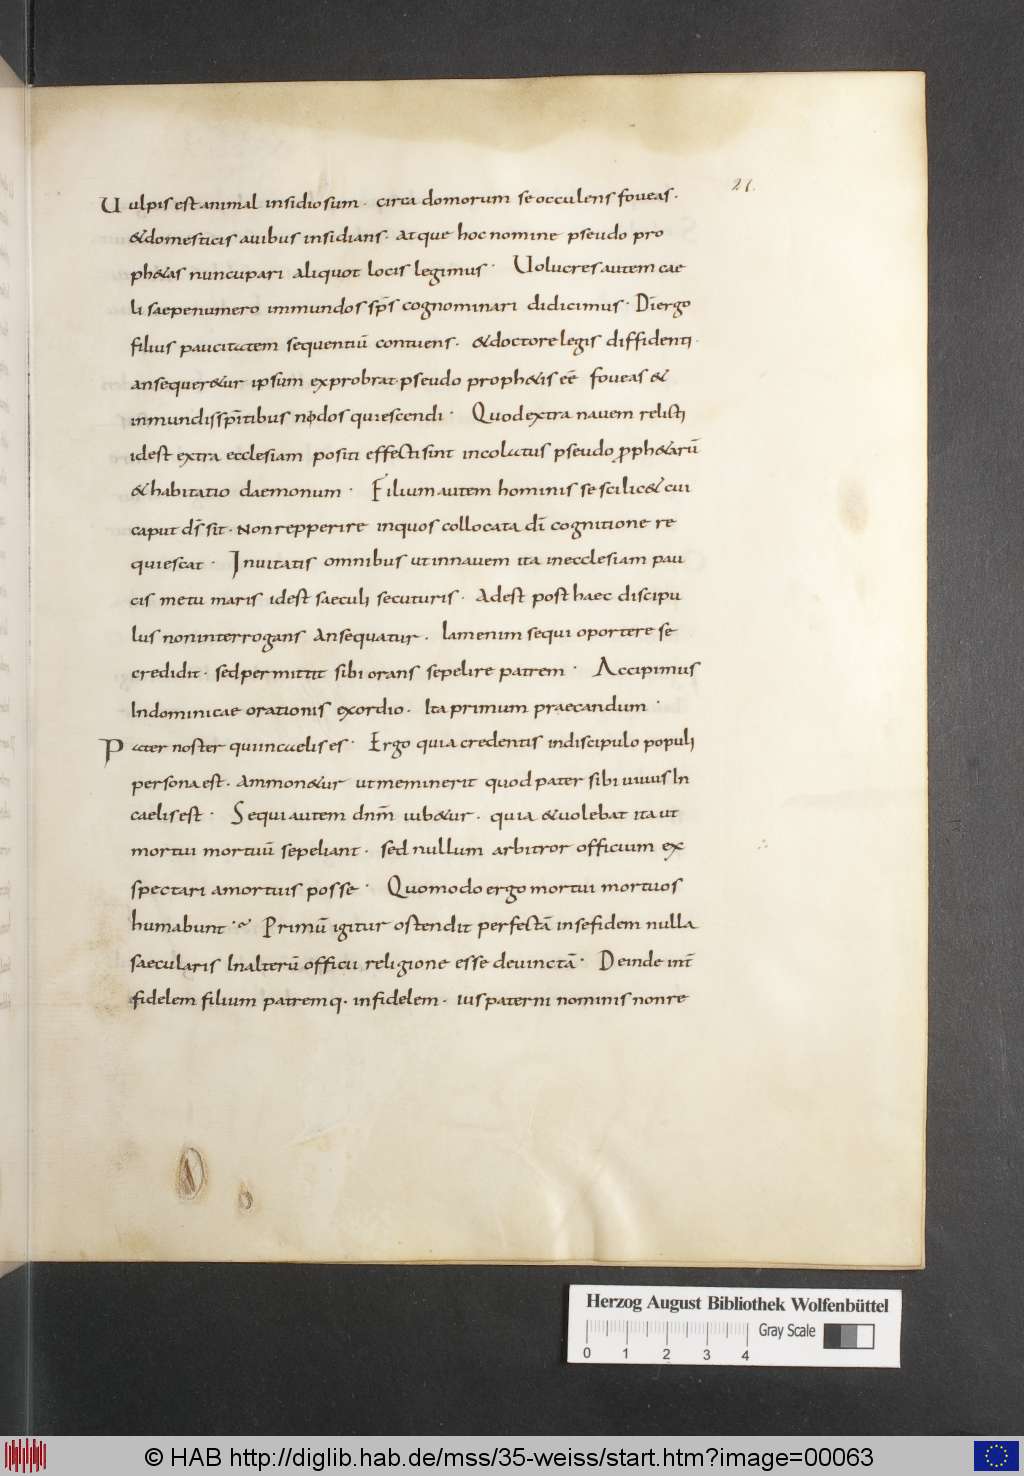 21.
Uulpis est animal insidiosum. circa domorum se occulens foueas.
&domesticis auibus insidians. atque hoc nomine pseudo pro
ph&as nuncupari aliquot locis legimus. Uolucres autem cae
li saepenumero immundos sp̅s cognominari didicimus. Di̅ ergo
filius paucitatem sequentiu̅ contuens. &doctore legis diffidenti.
an sequer&ur ipsum exprobrat pseudo proph&is ee̅ foueas &
inmundis sp̅itibus nodos quiescendi. Quod extra nauem relicti
id est extra ecclesiam positi effecti sint incolatus pseudo ꝓph&aru̅
& habitatio daemonum. Filium autem hominis se scilic& cui
caput ds̅ sit. non repperire in quos collocata di̅ cognitione re
quiescat. Inuitatis omnibus ut in nauem ita in ecclesiam pau
cis metu maris id est saeculi secuturis. Adest post haec discipu
lus non interrogans an sequatur. Iam enim se qui oportere se
credidit. sed permittit sibi orans sepelire patrem. Accipimus
In dominicae orationis exordio. Ita primum praecandum.
Pater noster qui in caelis es. Ergo quia credentis in discipulo populi
persona est. ammon&ur ut meminerit quod pater sibi uiuus In
caelis est. Sequi autem dnm̅ iub&ur. quia &uolebat ita ut
mortui mortuu̅ sepeliant. sed nullum arbitror officium ex
spectari a mortuis posse. Quomodo ergo mortui mortuos
humabunt. Primu̅ igitur ostendit perfecta̅ in se fidem nulla
saecularis In alteru̅ officii religione esse deuincta̅. Deinde int̅
fidelem filium patremq. infidelem. ius paterni nominis non re
Herzog August Bibliothek Wolfenbüttel
Gray Scale
0 1 2 3 4
© HAB http://diglib.hab.de/mss/35-weiss/start.htm?image=00063